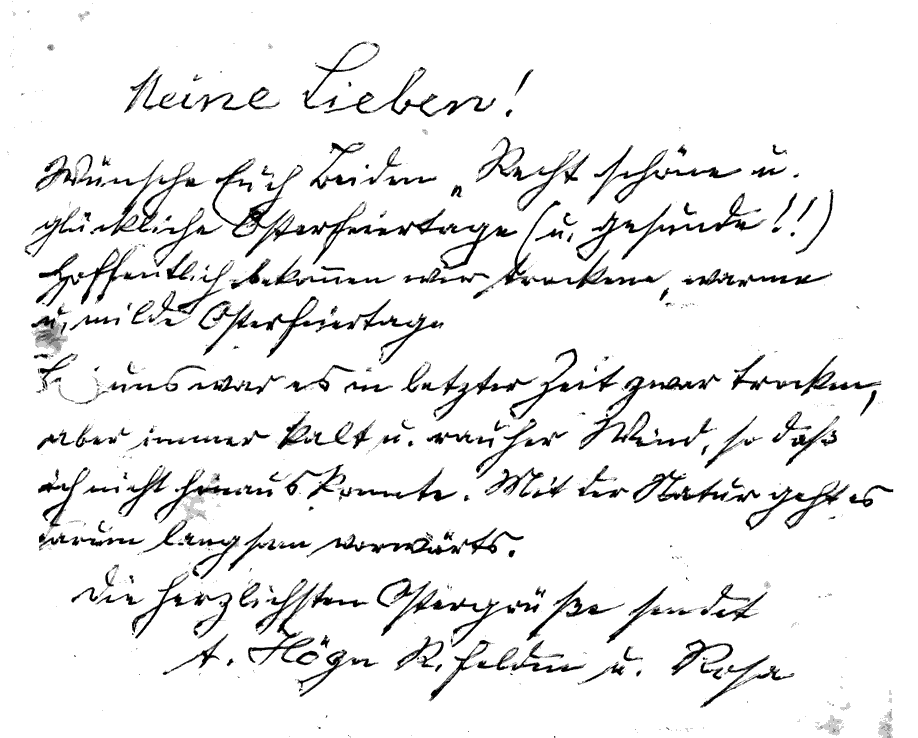 Meine Lieben!
Wünsche Euch Beiden „Recht schöne u.
glückliche Osterfeiertage (u. gesunde!!)
Hoffentlich bekom̅en wir trockene, warme
u. milde Osterfeiertage
Bei uns war es in letzter Zeit zwar trocken,
aber immer kalt u. rauher Wind, so daß
ich nicht hinaus konnte. Mit der Natur geht es
darum langsam vorwärts.
Die herzlichsten Ostergrüße sendet
A. Högn u. Rosa